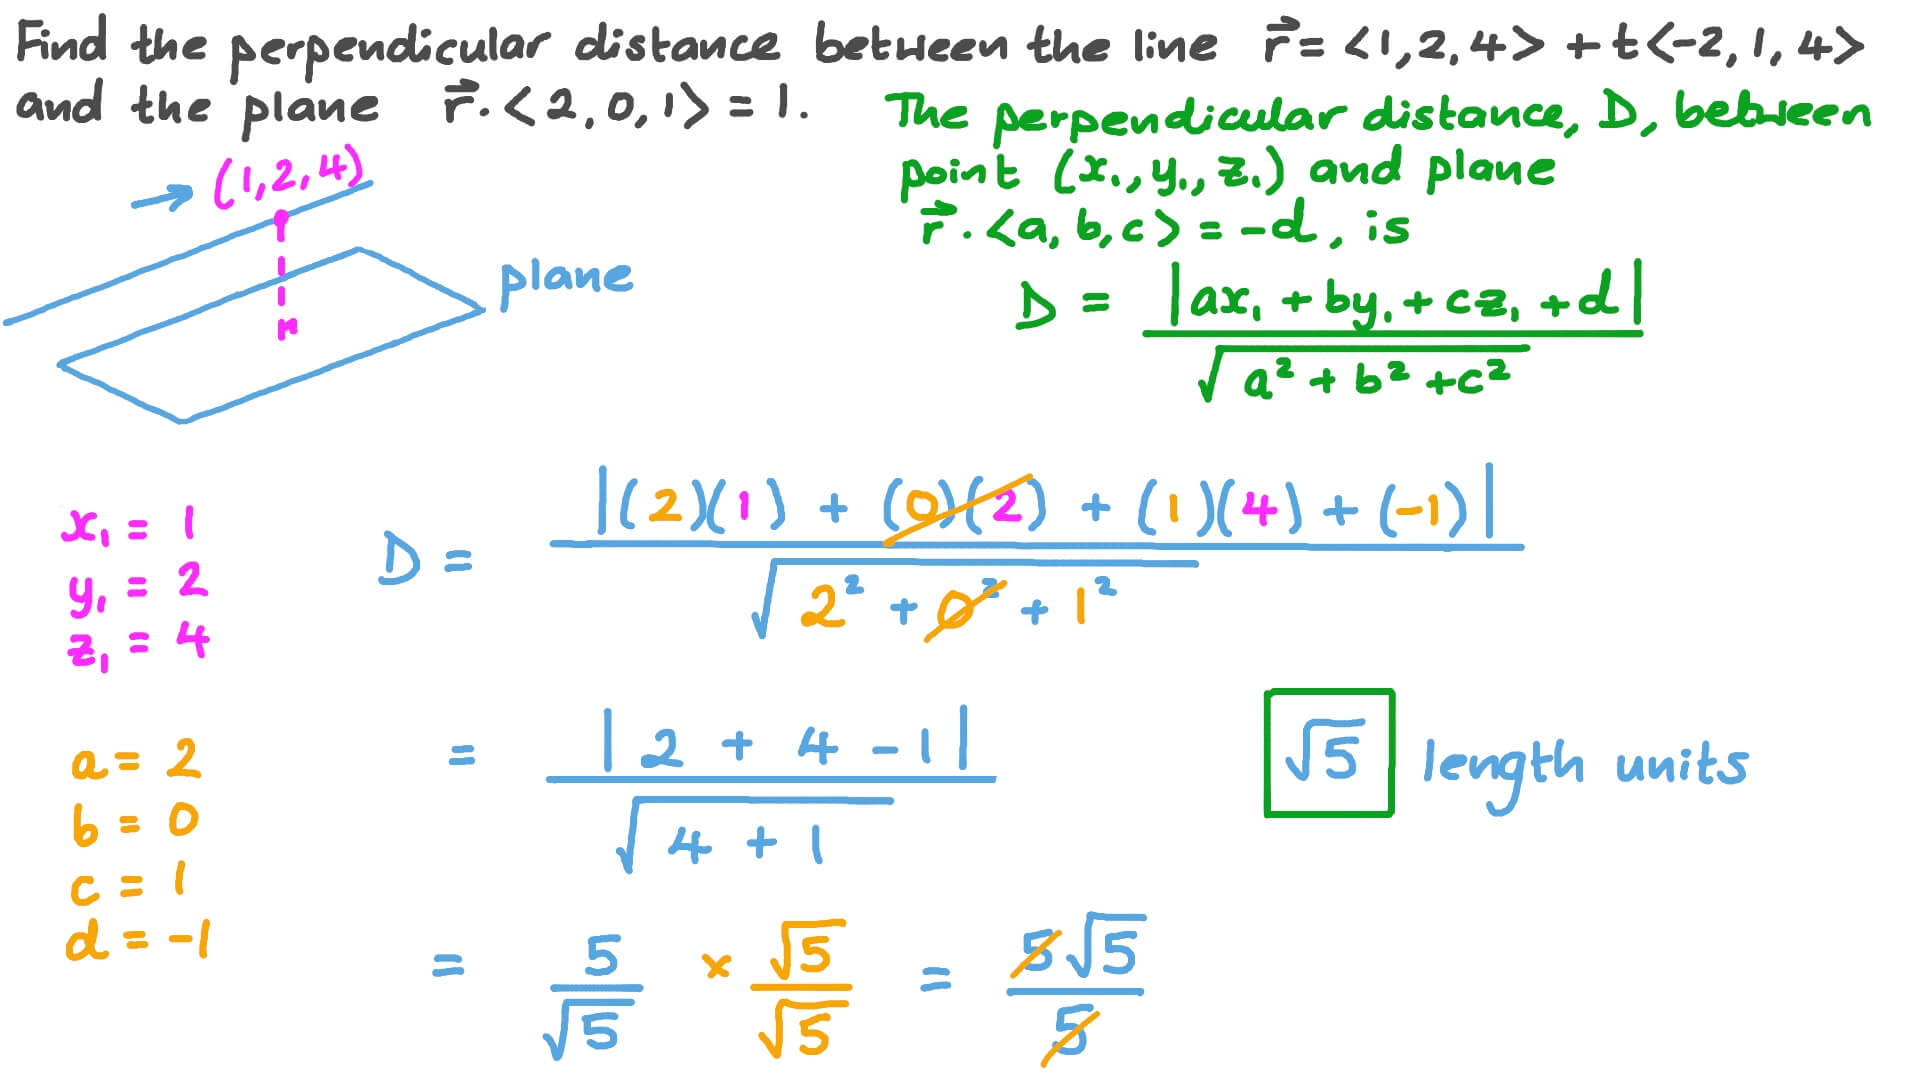 Find the perpendicular distance between the line r⃗ = <1,2,4> + t<-2,1,4>
and the plane r⃗.<2,0,1> = 1.
The perpendicular distance, D, between
point (x₁,y₁,z₁) and plane
r⃗.<a,b,c> = -d, is
D = |ax₁ + by₁ + cz₁ + d| / √(a² + b² + c²)
(1,2,4)
plane
x₁ = 1
y₁ = 2
z₁ = 4
a = 2
b = 0
c = 1
d = -1
D = |(2)(1) + (0)(2) + (1)(4) + (-1)| / √(2² + 0² + 1²)
= |2 + 4 - 1| / √(4 + 1)
= 5/√5 × √5/√5 = 5√5/5
√5 length units